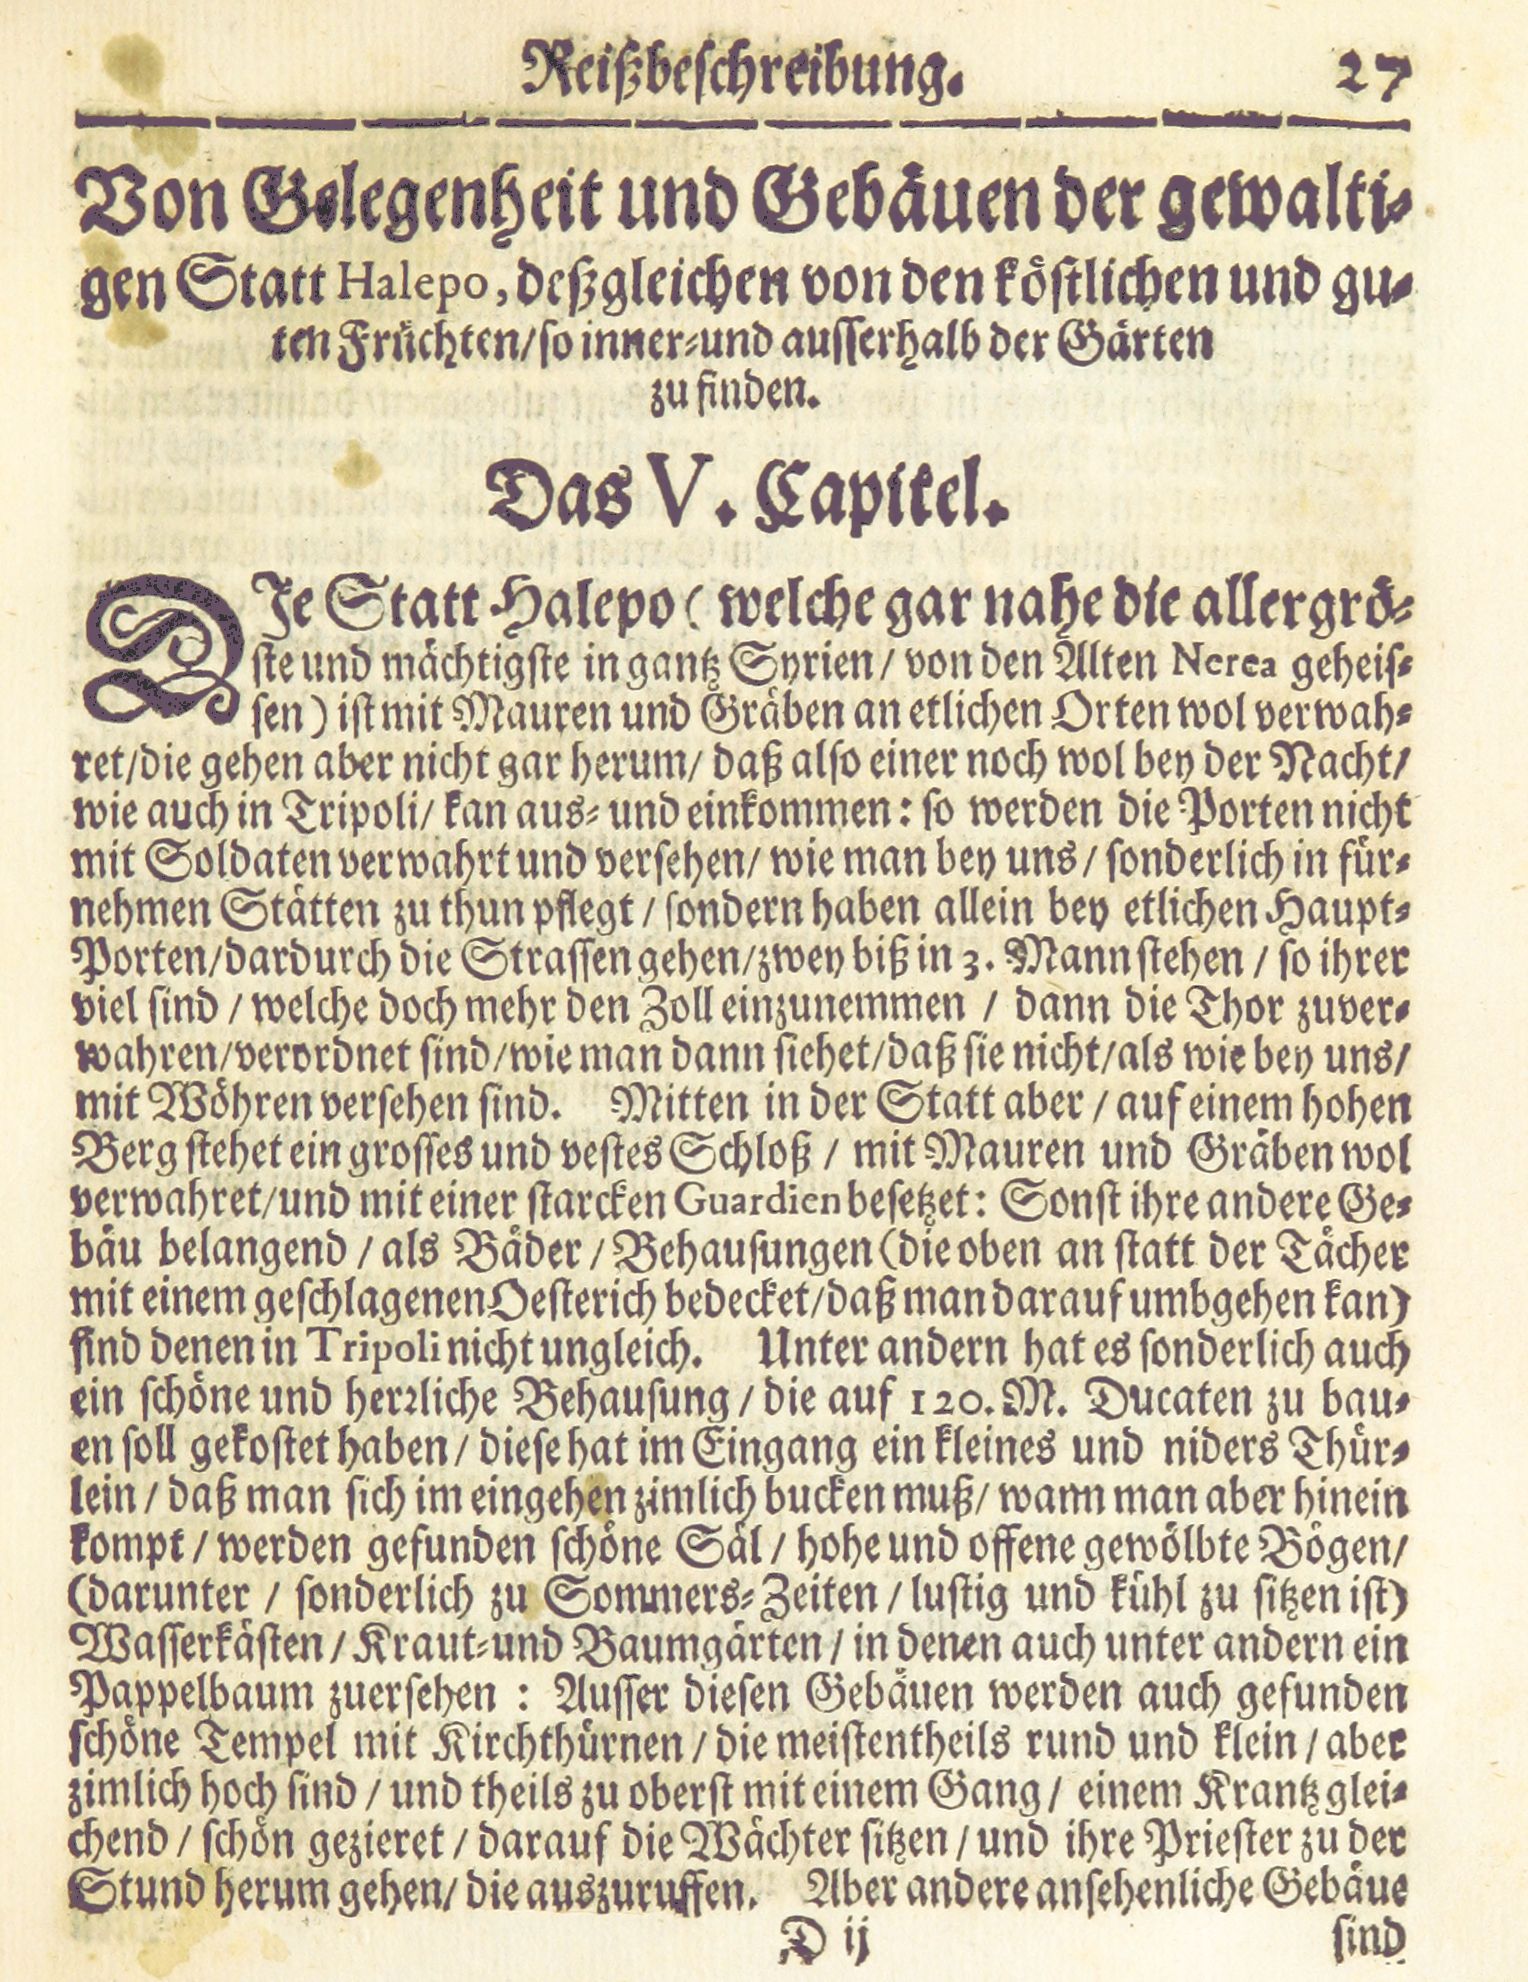 Reißbeschreibung. 27
Von Gelegenheit und Gebäuen der gewalti-
gen Statt Halepo, deßgleichen von den köstlichen und gu-
ten Früchten/ so inner- und ausserhalb der Gärten
zu finden.
Das V. Capitel.
DIe Statt Halepo ( welche gar nahe die allergrö-
ste und mächtigste in gantz Syrien/ von den Alten Nerea geheis-
sen ) ist mit Mauren und Gräben an etlichen Orten wol verwah-
ret/ die gehen aber nicht gar herum/ daß also einer noch wol bey der Nacht/
wie auch in Tripoli/ kan aus- und einkommen: so werden die Porten nicht
mit Soldaten verwahrt und versehen/ wie man bey uns/ sonderlich in für-
nehmen Stätten zu thun pflegt / sondern haben allein bey etlichen Haupt-
Porten/ dardurch die Strassen gehen/ zwey biß in 3. Mann stehen / so ihrer
viel sind / welche doch mehr den Zoll einzunemmen / dann die Thor zuver-
wahren/ verordnet sind/ wie man dann siehet/ daß sie nicht/ als wie bey uns/
mit Wöhren versehen sind. Mitten in der Statt aber / auf einem hohen
Berg stehet ein grosses und vestes Schloß / mit Mauren und Gräben wol
verwahret/ und mit einer starcken Guardien besetzet: Sonst ihre andere Ge-
bäu belangend / als Bäder / Behausungen (die oben an statt der Tächer
mit einem geschlagenen Oesterich bedecket/ daß man darauf umbgehen kan)
sind denen in Tripoli nicht ungleich. Unter andern hat es sonderlich auch
ein schöne und herrliche Behausung / die auf 120. M. Ducaten zu bau-
en soll gekostet haben / diese hat im Eingang ein kleines und niders Thür-
lein / daß man sich im eingehen zimlich bucken muß/ wann man aber hinein
kompt / werden gefunden schöne Säl / hohe und offene gewölbte Bögen/
(darunter / sonderlich zu Sommers-Zeiten / lustig und kühl zu sitzen ist)
Wasserkästen / Kraut- und Baumgärten / in denen auch unter andern ein
Pappelbaum zuersehen : Ausser diesen Gebäuen werden auch gefunden
schöne Tempel mit Kirchthürnen / die meistentheils rund und klein / aber
zimlich hoch sind / und theils zu oberst mit einem Gang / einem Krantz glei-
chend / schön gezieret / darauf die Wächter sitzen / und ihre Priester zu der
Stund herum gehen/ die auszuruffen. Aber andere ansehenliche Gebäue
D ij sind